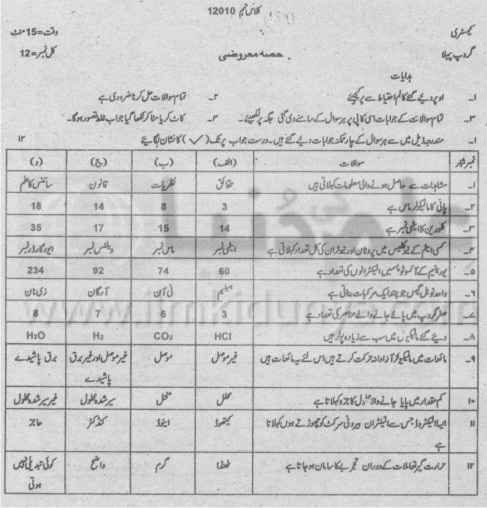 کلاس نہم 12010
کیمسٹری
وقت=15 منٹ
گروپ پہلا
حصہ معروضی
کل نمبر=12
ہدایات
۱۔ اوپر دیئے گئے کالم احتیاط سے پر کیجئے ۲۔ تمام سوالات حل کرنا ضروری ہے
۳۔ تمام سوالات کے جوابات اسی کاپی پر ہر سوال کے سامنے دی گئی جگہ پر لکھیئے۔ ۴۔ کاٹ کر یا مٹا کر لکھا گیا جواب غلط تصور ہوگا۔
۱۔ مندرجہ ذیل میں سے ہر سوال کے چار ممکنہ جوابات دیئے گئے ہیں۔ درست جواب پر ٹک (✓) کا نشان لگائیے ۱۲
نمبر شمار سوالات (الف) (ب) (ج) (د)
۱۔ مشاہدات سے حاصل ہونے والی معلومات کہلاتی ہیں حقائق نظریات قانون سائنس کا علم
۲۔ پانی کا مالیکیولر ماس ہے 3 8 14 18
۳۔ کلورین کا ایٹمی نمبر ہے 14 15 17 35
۴۔ کسی ایٹم کے نیوکلیئس میں پروٹان اور نیوٹران کی کل تعداد کہلاتی ہے ایٹمی نمبر ماس نمبر ویلنس نمبر ایووگاڈرو نمبر
۵۔ یورینیم کے آئسوٹوپس میں الیکٹرانوں کی تعداد ہے 60 74 92 234
۶۔ واحد نوبل گیس جو چند ایک مرکبات بناتی ہے ہیلیم نی آن آرگان زی نان
۷۔ صفر گروپ میں پائے جانے والے عناصر کی تعداد ہے 3 6 7 8
۸۔ دیئے گئے مالیکیولز میں سب سے زیادہ پولر ہیں HCl CO₂ H₂ H₂O
۹۔ مائعات میں مالیکیولز آزادانہ حرکت کرتے ہیں اس لئے یہ مائعات ہیں غیر موصل موصل غیر موصل اور غیر برق پاشیدے برق پاشیدے
۱۰ کم مقدار میں پایا جانے والا محلول کا جزو کہلاتا ہے محلل منحل سیر شدہ محلول غیر سیر شدہ محلول
۱۱ ایسا الیکٹروڈ جس سے الیکٹران بیرونی سرکٹ کو چھوڑتے ہوں کہلاتا ہے کیتھوڈ اینوڈ کنڈکٹر حاجز
۱۲ حرارت گیر تعاملات کے دوران تجربے کا سامان ہو جاتا ہے ٹھنڈا گرم واضح کوئی تبدیلی نہیں ہوتی